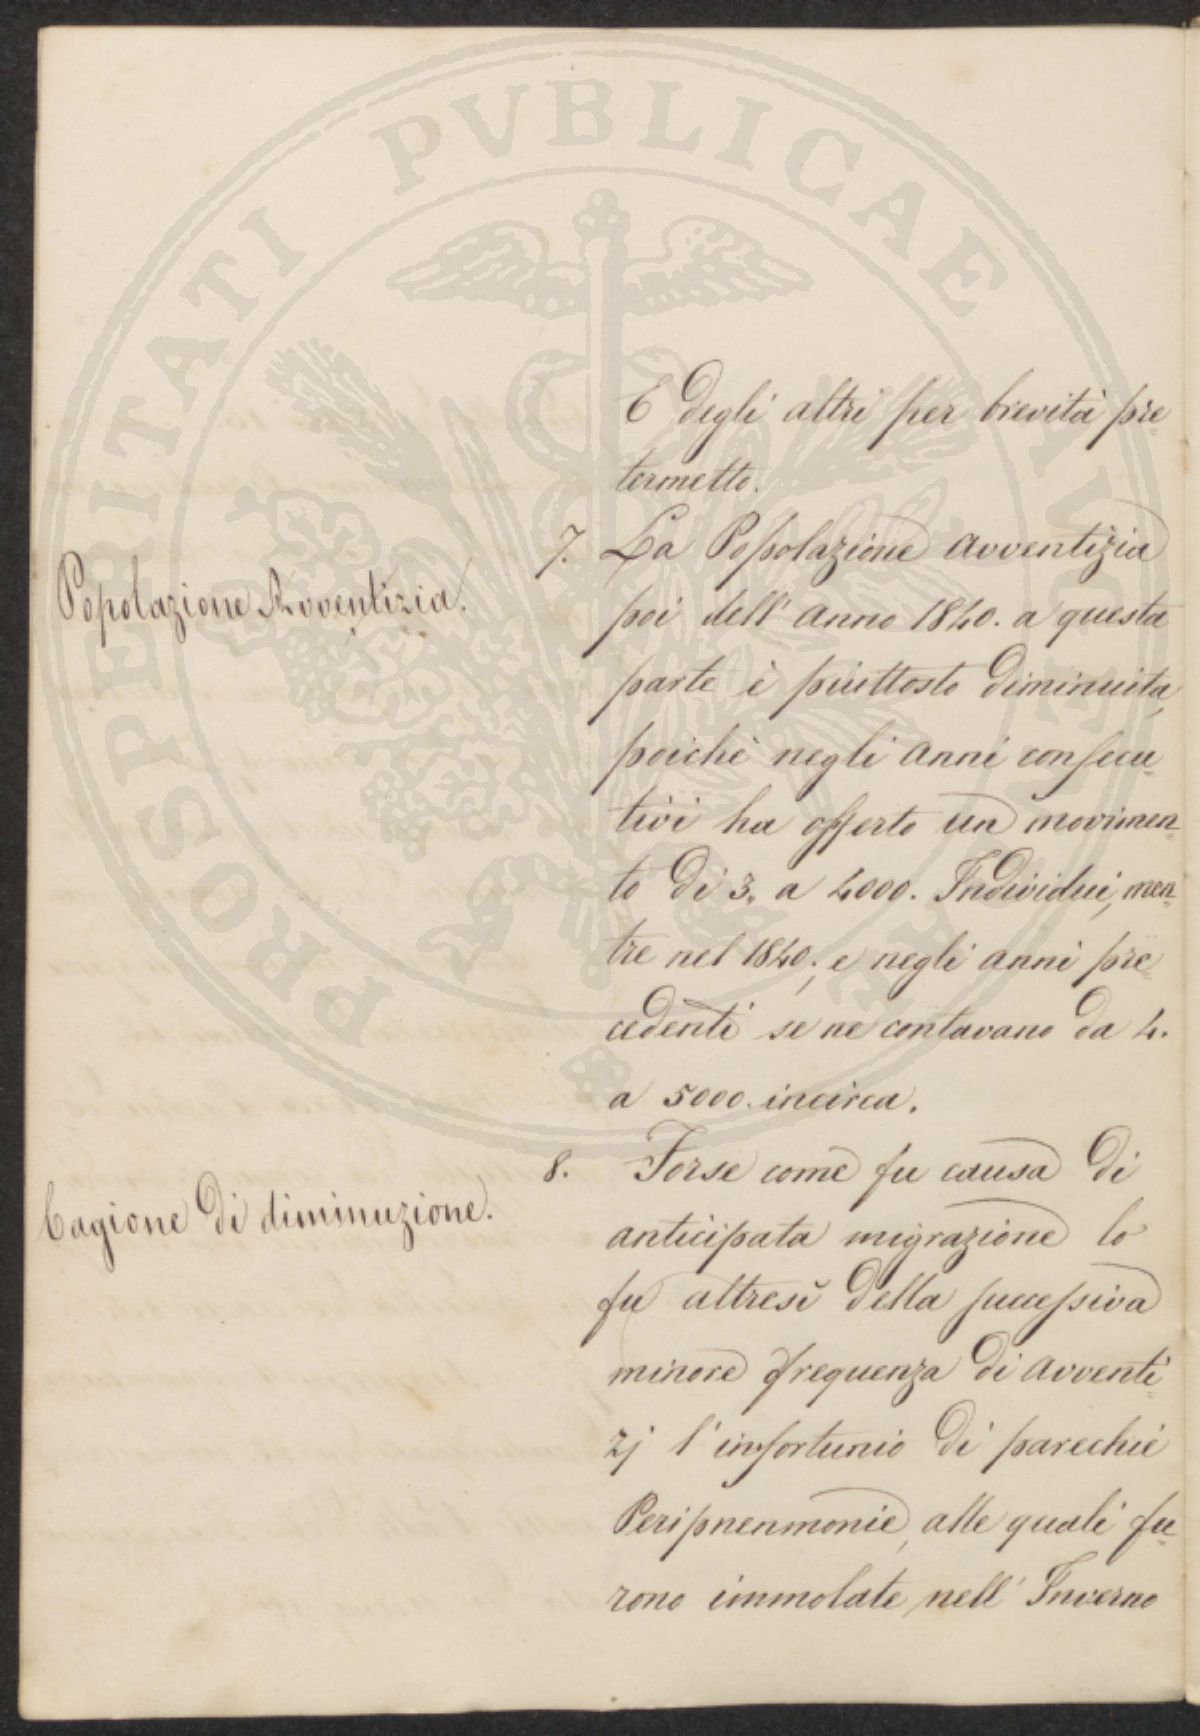 E degli altri per brevità pre
termetto.
Popolazione Avventizia.
7. La Popolazione avventizia
poi dell' anno 1840. a questa
parte è piuttosto diminuita,
poichè negli anni consecu
tivi ha offerto un movimen
to di 3. a 4000. Individui, men
tre nel 1840; e negli anni pre
cedenti se ne contavano da 4.
a 5000. incirca.
Cagione di diminuzione.
8. Forse come fu causa di
anticipata migrazione lo
fu altresì della successiva
minore frequenza di avventi
zj l'infortunio di parechie
Peripnenmonie, alle quali fu
rono immolate, nell' Inverno
PROSPERITATI PVBLICAE